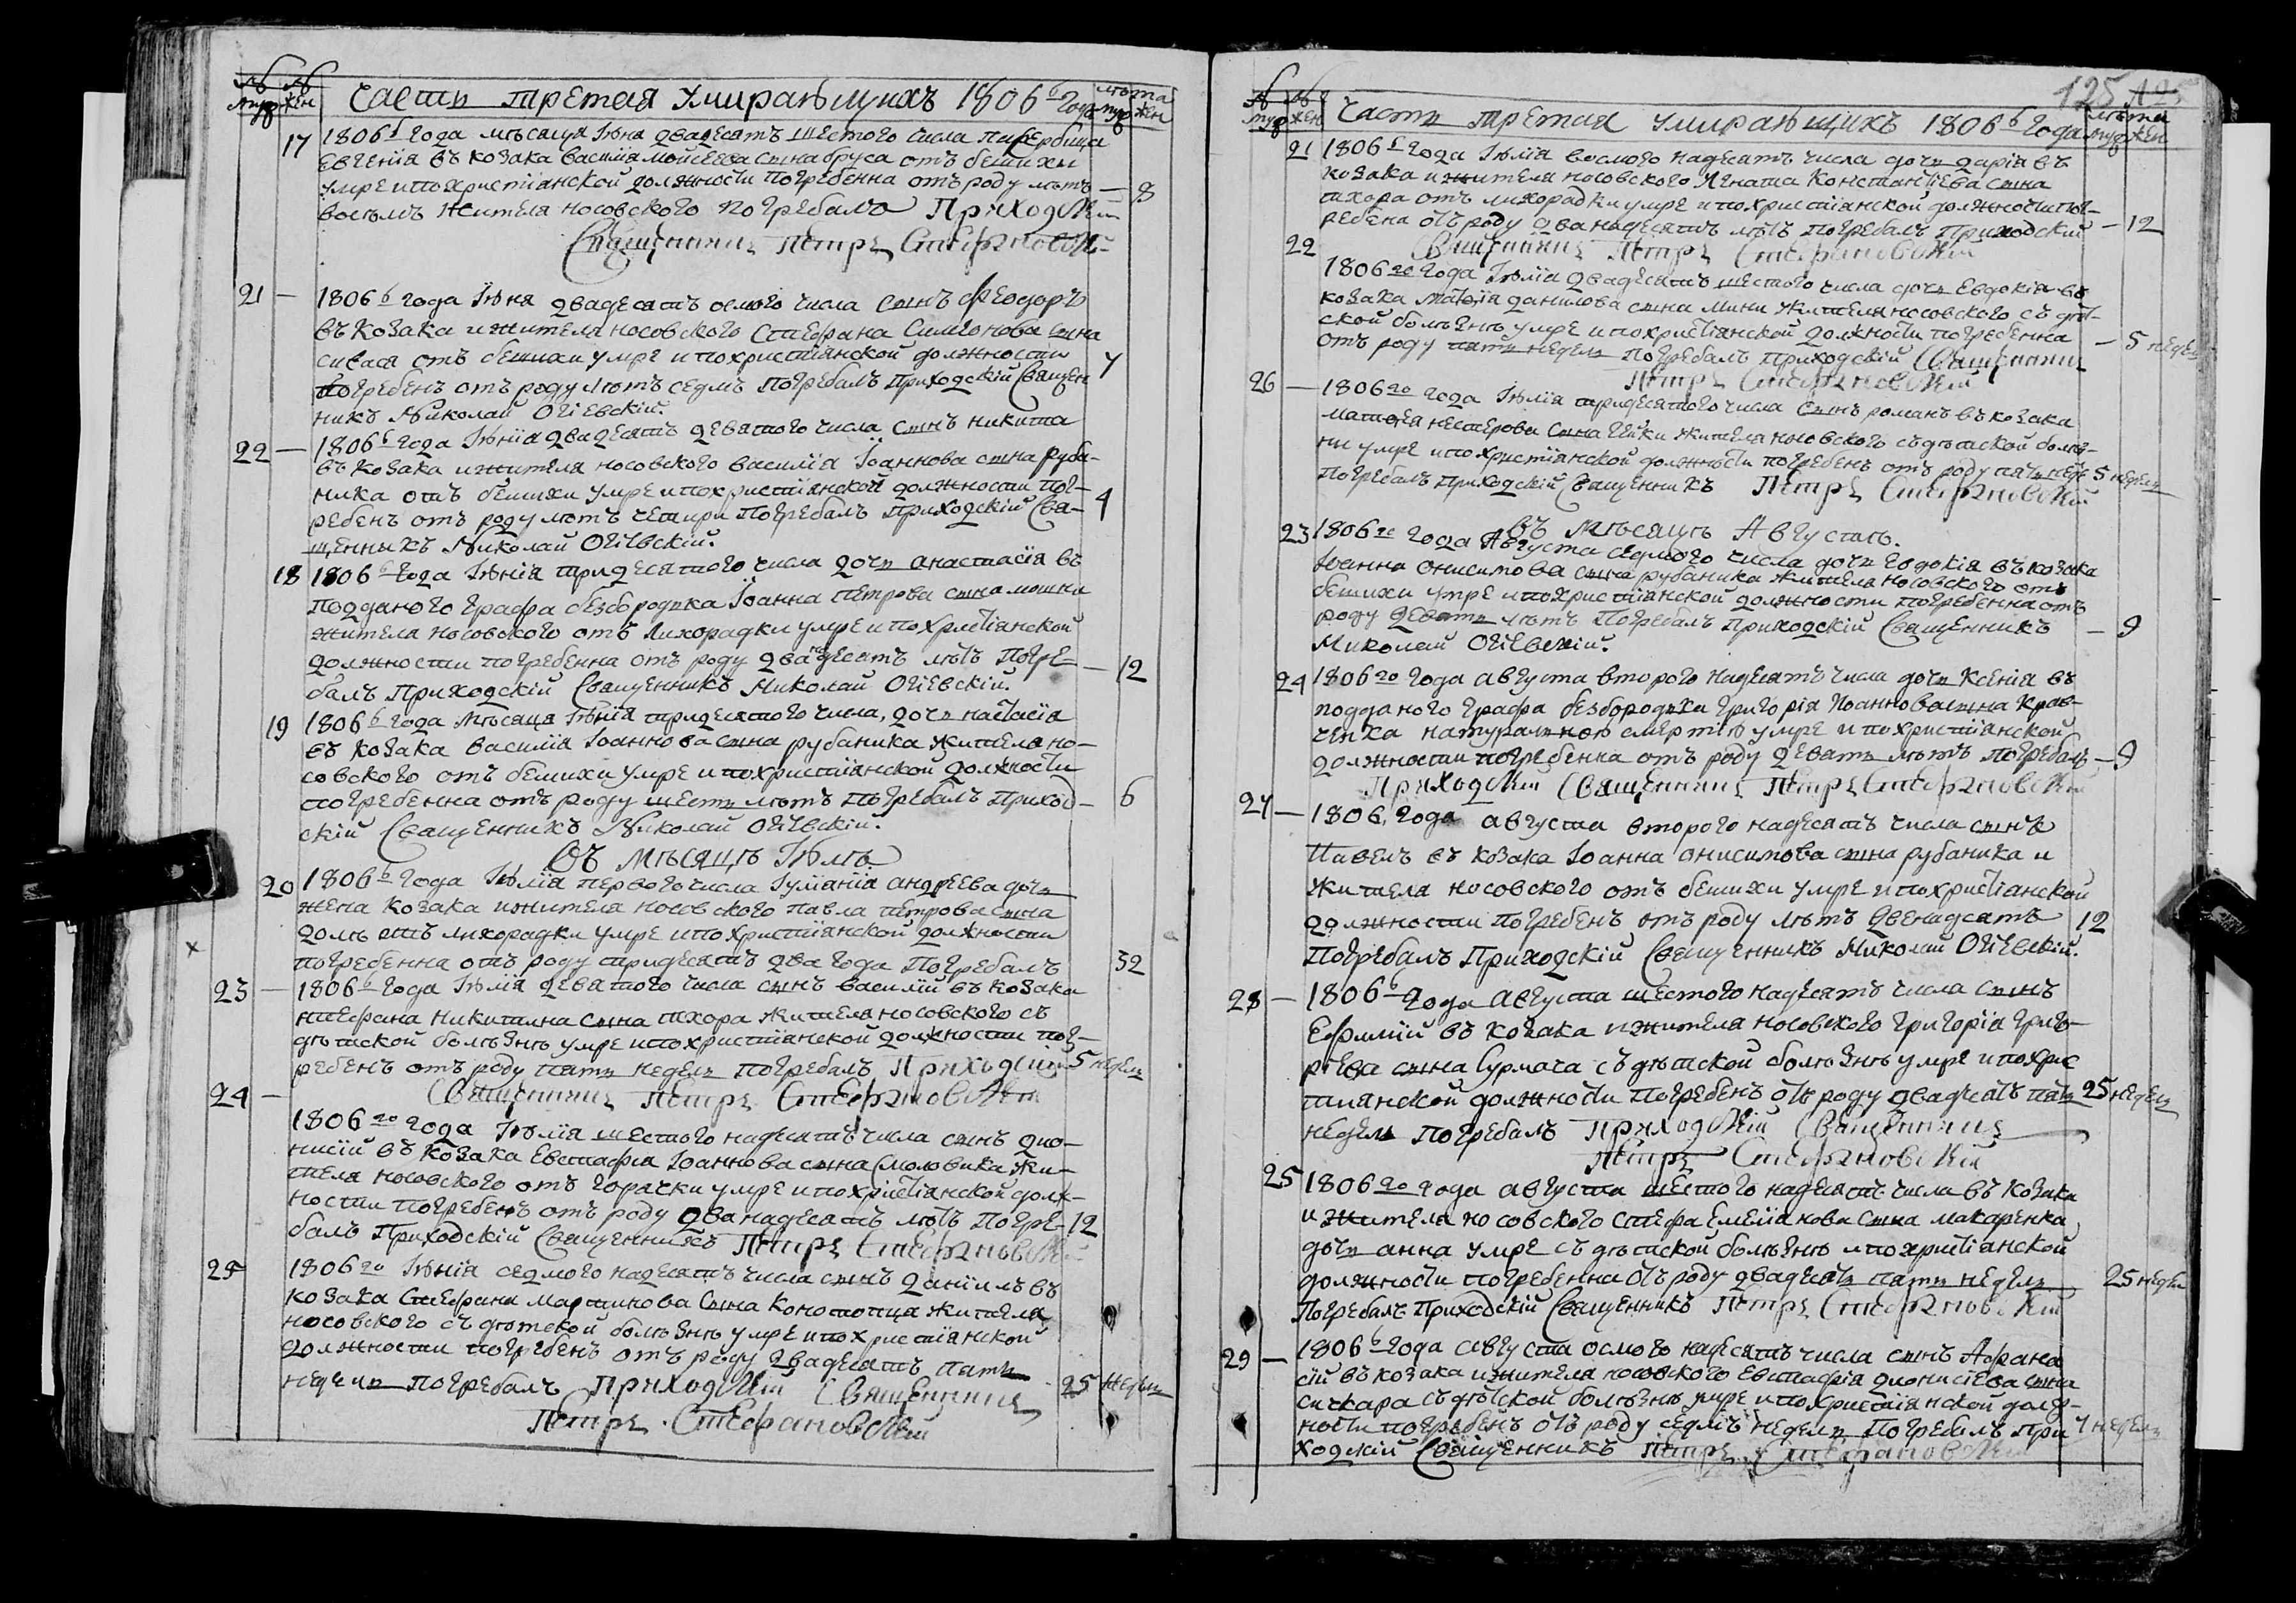 № № лѣта
муж жен Часть третая умирающихъ 1806 б года муж жен
17 1806 б года мѣсяца Іюня двадесятъ шестого числа
Евгенія въ козака василія мойсеева сына бруса отъ бешихи
умре и похристіанской должности погребенна отъ роду лѣтъ — 8
восемъ жителя носовского погребалъ Приходскій
Священникъ Петръ Стефановскій
21 — 1806 б года Іюня двадесятъ осмого числа сынъ Феодоръ
въ козака и жителя носовского Стефана Симеонова сына
сиваса отъ бешихи умре и похристіанской должности 7
погребенъ отъ роду лѣтъ седмъ погребалъ Приходскій Священ
никъ Николай Огіевскій.
22 — 1806 б года Іюнїя двадесятъ деватого числа сынъ никита
въ козака и жителя носовского василія Іоаннова сына руба-
ника отъ бешихи умре и похристіанской должности пог-
ребенъ отъ роду лѣтъ четири Погребалъ Приходскій Свя- 4
щенникъ Николай Огіевскій.
18 1806 б года Іюнія тридесятого числа дочь анастасія въ
подданого графа безбородька Іоанна петрова сына мошки
жителя носовского отъ Лихорадки умре и похристіанской
должности погребенна отъ роду дванадесятъ лѣтъ Погре- — 12
балъ Приходскій Священникъ Николай Огіевскій.
19 1806 б года Мѣсяца Іюнія тридесятого числа, дочь настасія
въ козака василія Іоаннова сына рубаника жителя но-
совского отъ бешихи умре и похристіанской должности
погребенна отъ роду шесть лѣтъ погребалъ Приход- 6
скій Священникъ Николай Огіевскій.
Въ мѣсяцѣ Іюлѣ
20 1806 б года Іюлія первого числа Іуліанія андреева дочь
жена козака и жителя носовского павла петрова сына
отъ лихорадки умре и похристіанской должности
погребенна отъ роду тридесятъ два года Погребалъ 32
23 — 1806 б года Іюлія деватого числа сынъ василій въ козака
стефана никитина сына тхора жителя носовского съ
дѣтской болѣзнѣ умре и похристіанской должности пог-
ребенъ отъ роду пять недель погребалъ Приходскій 5 недель
24 — Священникъ Петръ Стефановскій
1806 го года Іюлія шестого надесятъ числа сынъ дио-
нисій въ козака Евстафія Іоаннова сына Смоловика жи-
теля носовского отъ горачки умре и похристіанской долж-
ности погребенъ отъ роду дванадесятъ лѣтъ Погре- 12
балъ Приходскій Священникъ Петръ Стефановскій
25 1806 го Іюнія седмого надесятъ числа сынъ даніилъ въ
козака Стефана мартинова Сына Конотопца жителя
носовского съ дѣтской болѣзнѣ умре и похристіанской
должности погребенъ отъ роду двадесятъ пять
недель погребалъ Приходскій Священникъ 25 недель
Петръ Стефановскій
125
№ № лѣта
муж жен Часть третая умирающихъ 1806 б года муж жен
21 1806 б года Іюлія восмого надесятъ числа дочь дарія въ
козака и жителя носовского Игната Константіева сына
тхора отъ лихорадки умре и похристіанской должности пог-
ребена отъ роду дванадесятъ лѣтъ погребалъ Приходскій — 12
22 Священникъ Петръ Стефановскій
1806 го года Іюлія двадесятъ шестого числа дочь Евдокія въ
козака матѳія данилова сына мини жителя носовского съ дѣт-
ской болѣзнѣ умре и похристіанской должности погребенна
отъ роду пять недель погребалъ приходскій Священникъ — 5 недель
Петръ Стефановскій
26 — 1806 го года Іюлія тридесятого числа сынъ романъ въ козака
матѳея нестерова сына гейки жителя носовского съ дѣтской болѣз-
ни умре и похристіанской должности погребенъ отъ роду пять недель 5 недель
Погребалъ Приходскій Священникъ Петръ Стефановскій
Въ мѣсяцѣ Августѣ.
23 1806 го года Августа седмого числа дочь Евдокія въ козака
Іоанна онисимова сына рубаника жителя носовского отъ
бешихи умре и похристіанской должности погребенна отъ
роду деватъ лѣтъ Погребалъ Приходскій Священникъ — 9
Николай Огіевскій.
24 1806 го года августа второго надесятъ числа дочь Ксенія въ
подданого графа безбородька григорія Иоаннова сына Крав-
ченка натуралною смертію умре и похристіанской
должности погребенна отъ роду деватъ лѣтъ погребалъ — 9
Приходскій Священникъ Петръ Стефановскій
27 — 1806, года августа второго надесятъ числа сынъ
Павелъ въ козака Іоанна онисимова сына рубаника и
жителя носовского отъ бешихи умре и похристіанской
должности погребенъ отъ роду лѣтъ двенадсятъ 12
Погребалъ Приходскій Священникъ Николай Огіевскій.
28 — 1806 б года августа шестого надесятъ числа сынъ
Ефимій въ козака и жителя носовского григорія григо-
ріева сына Сурмача съ дѣтской болѣзнѣ умре и похрис
тианской должности погребенъ отъ роду двадесятъ пять 25 недель
недель погребалъ Приходскій Священникъ
Петръ Стефановскій
25 1806 го года августа шестого надесятъ числа въ козака
и жителя носовского Стефа Емеліанова сына макаренка
дочь анна умре съ дѣтской болѣзнѣ и похристіанской
должности погребенна отъ роду двадесять пять недель 25 недель
Погребалъ Приходскій Священникъ Петръ Стефановскій
29 — 1806 б года августа осмого надесятъ числа сынъ Афана
сій въ козака и жителя носовского Евстафія дионисіева сына
сичкара съ дѣтской болѣзнѣ умре и похристіанской долж-
ности погребенъ отъ роду седмъ недель Погребалъ При 7 недель
ходскій Священникъ Петръ Стефановскій